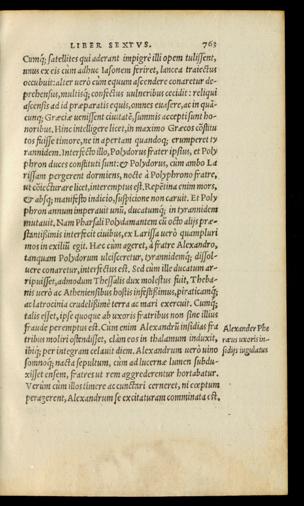 LIBER SEXTVS. 763
Cumq́; satellites qui aderant impigrè illi opem tulissent,
unus ex eis cùm adhuc Iasonem feriret, lancea traiectus
occubuit: alter uerò cùm equum ascendere conaretur de-
prehensus, multisq́; confectus uulneribus cecidit: reliqui
ascensis ad id præparatis equis, omnes euasere, ac in quã-
cunq; Græciæ uenissent ciuitatẽ, summis accepti sunt ho-
noribus. Hinc intelligere licet, in maximo Græcos cõstitu
tos fuisse timore, ne in apertam quandoq; erumperet ty
rannidem. Interfecto illo, Polydorus frater ipsius, et Poly
phron duces constituti sunt: & Polydorus, cùm ambo La
rissam pergerent dormiens, nocte à Polyphrono fratre,
ut cõiecturare licet, interemptus est. Repẽtina enim mors,
& absq; manifesto indicio, suspicione non caruit. Et Poly
phron annum imperauit unũ, ducatumq́; in tyrannidem
mutauit. Nam Pharsali Polydamantem cũ octo alijs præ-
stantißimis interfecit ciuibus, ex Larissa uerò quampluri
mos in exiliũ egit. Hæc cùm ageret, à fratre Alexandro,
tanquam Polydorum ulcisceretur, tyrannidemq́; dissol-
uere conaretur, interfectus est. Sed cùm ille ducatum ar-
ripuisset, admodum Thessalis dux molestus fuit, Theba-
nis uerò ac Atheniensibus hostis infestißimus, piraticamq́;
ac latrocinia crudelißimè terra ac mari exercuit. Cumq́;
talis esset, ipse quoque ab uxoris fratribus non sine illius
fraude peremptus est. Cùm enim Alexandrũ insidias fra
tribus moliri ostendisset, clàm eos in thalamum induxit,
ibiq́; per integram celauit diem. Alexandrum uerò uino
somnoq́; nacta sepultum, cùm ad lucernæ lumen subdu-
xisset ensem, fratres ut rem aggrederentur hortabatur.
Verùm cùm illos timere ac cunctari cerneret, ni cœptum
peragerent, Alexandrum se excitaturam comminata est,
Alexander Phe
ræus uxoris in-
sidijs iugulatus